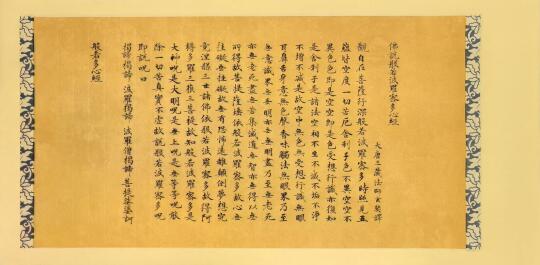 佛說般若波羅蜜多心經
大唐三藏法師玄奘譯
觀自在菩薩行深般若波羅蜜多時照見五
蘊皆空度一切苦厄舍利子色不異空空不
異色色即是空空即是色受想行識亦復如
是舍利子是諸法空相不生不滅不垢不淨
不增不減是故空中無色無受想行識無眼
耳鼻舌身意無色聲香味觸法無眼界乃至
無意識界無無明亦無無明盡乃至無老死
亦無老死盡無苦集滅道無智亦無得以無
所得故菩提薩埵依般若波羅蜜多故心無
罣礙無罣礙故無有恐怖遠離顛倒夢想究
竟涅槃三世諸佛依般若波羅蜜多故得阿
耨多羅三藐三菩提故知般若波羅蜜多是
大神呪是大明呪是無上呪是無等等呪能
除一切苦真實不虛故說般若波羅蜜多呪
即說呪曰
揭諦揭諦 波羅揭諦 波羅僧揭諦 菩提薩婆訶
般若多心經